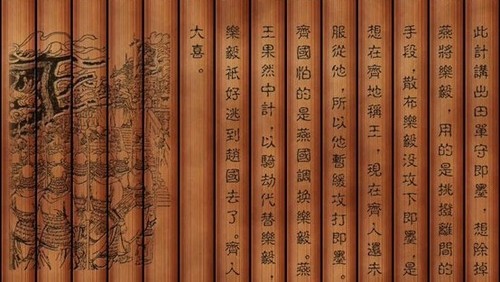 此計講出田單守即墨，想除掉
燕將樂毅，用的是挑撥離間的
手段，散布樂毅没攻下即墨，是
想在齊地稱王，現在齊人還未
服從他，所以他暫緩攻打即墨。
齊國怕的是燕國調換樂毅。燕
王果然中計，以騎劫代替樂毅，
樂毅祇好逃到趙國去了。齊人
大喜。